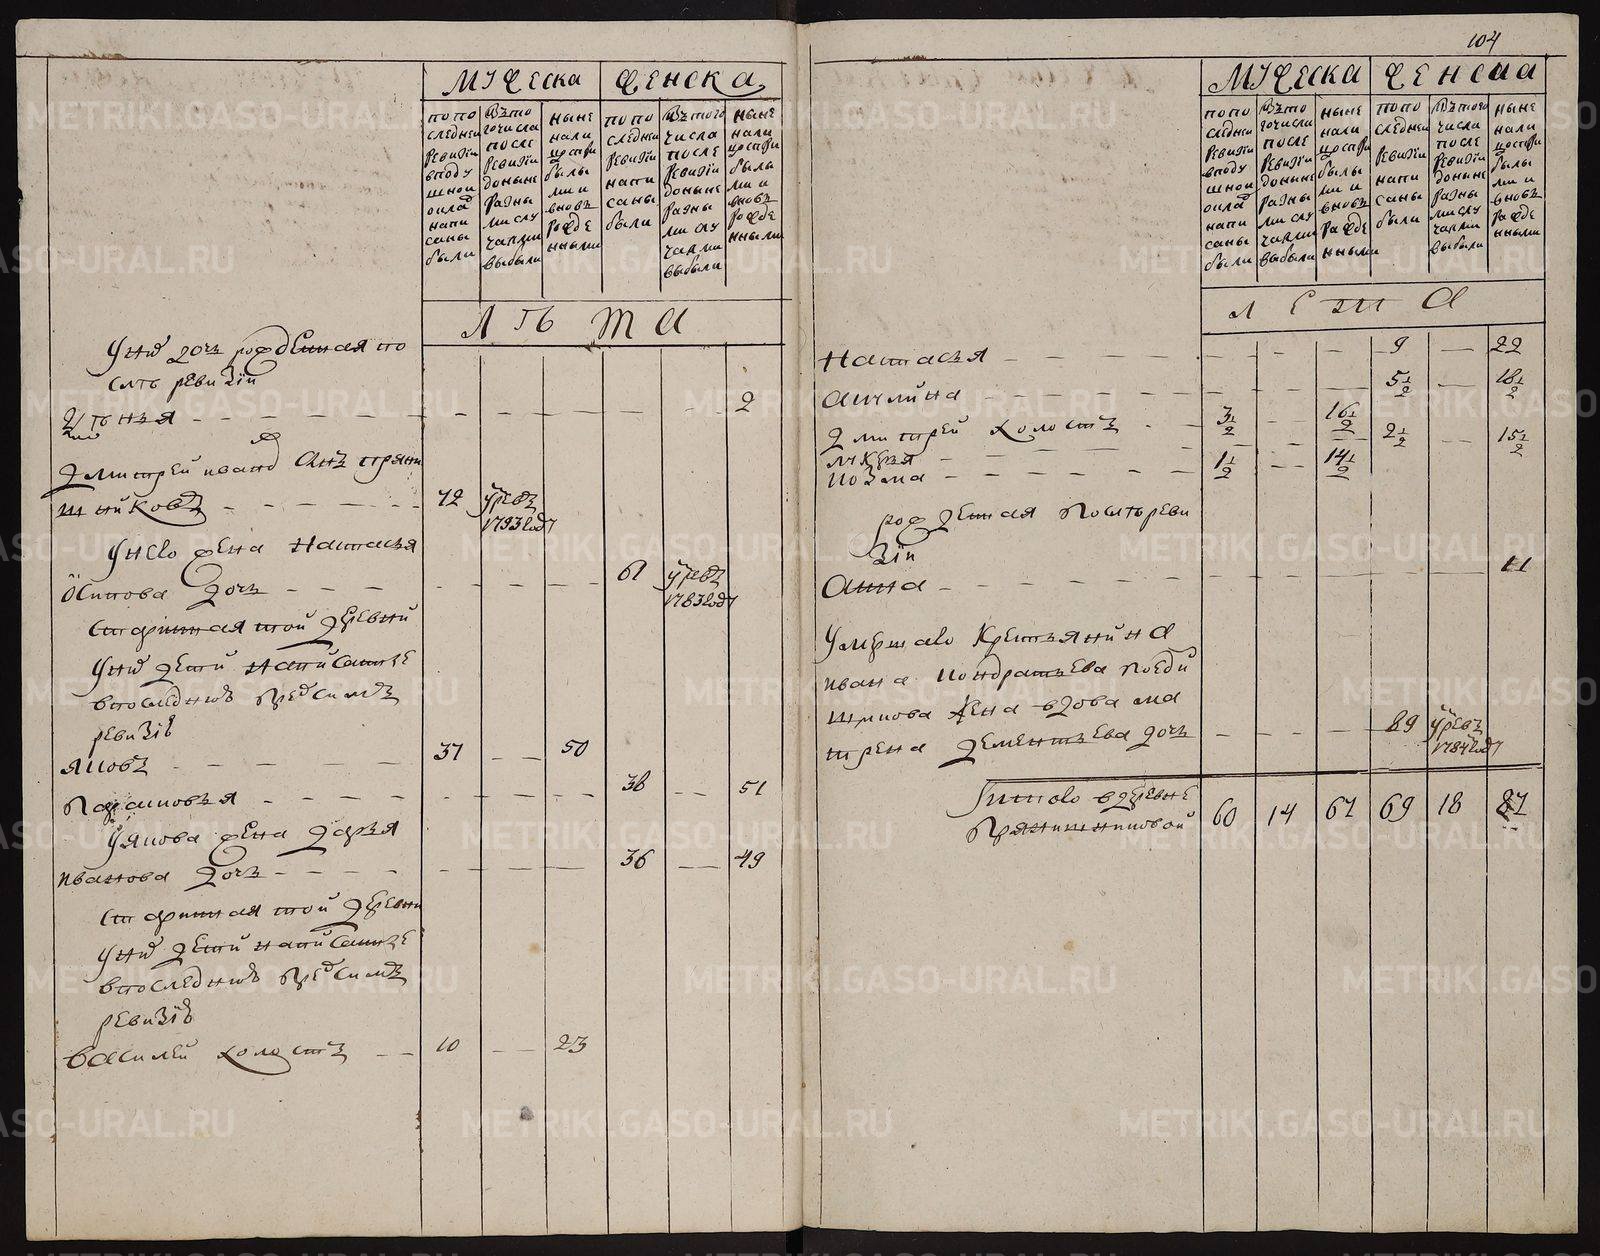 104
МУЖЕСКА ЖЕНСКА
попо следнеи ревизiи вподу шной окладъ напи саны были
Въто гочисла после ревизiи доныне разны ми слу чаями выбыли
ныне нали цо сти были ми и вновъ рожде нными
попо следнеи ревизiи напи саны были
Въ того числа после ревизiи доныне разны ми слу чаями выбыли
ныне нали цо сти были ми и вновъ рожде нными
ЛѢТА
У них дочь рожденная по
слѣ ревизiи
2
Дмитрей иванов сынъ пряни
шниковъ 42 умре въ 1793 году
У него жена настасья
осипова дочь 61 умре въ 1783 году
старинная той деревни
У них дети написанные
впоследнюю пред симъ
ревизiю
яковъ 37 50
Парасковья 38 51
У якова жена дарья
иванова дочь 36 49
старинная той деревни
У них дети написанные
впоследнюю пред симъ
ревизiю
василей холостъ 10 23
МУЖЕСКА ЖЕНСКА
попо следнеи ревизiи вподу шной окладъ напи саны были
Въто гочисла после ревизiи доныне разны ми слу чаями выбыли
ныне нали цо сти были ми и вновъ рожде нными
попо следнеи ревизiи напи саны были
Въ того числа после ревизiи доныне разны ми слу чаями выбыли
ныне нали цо сти были ми и вновъ рожде нными
ЛЕТА
Настасья 9 22
акулина 5 1/2 18 1/2
Дмитрей холостъ 3 1/2 16 1/2
лукерья 2 1/2 15 1/2
козма 1 1/2 14 1/2
рожденная послѣ реви
зiи
Анна 11
Умершаго крестьянина
ивана кондратьева
жена вдова ма
трена дементьева дочь 89 умре въ 1784 году
Итого вдеревне
Прянишниковой 60 14 67 69 18 87
METRIKI.GASO-URAL.RU